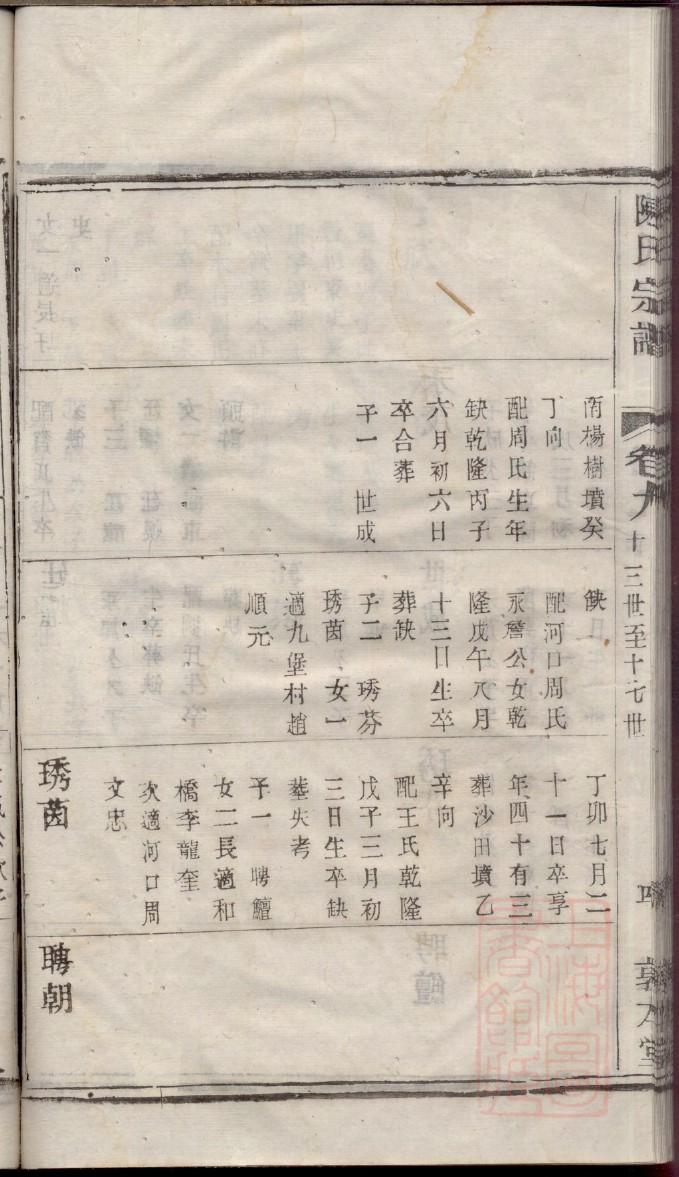 陳氏宗譜
卷九
十三世至十七世
敦本堂
南楊樹墳癸
丁向
配周氏生年
缺乾隆丙子
六月初六日
卒合葬
子一 世成
缺
配河口周氏
永詹公女乾
隆戊午八月
十三日生卒
葬缺
子二 琇芬
琇茵 女一
適九堡村趙
順元
丁卯七月二
十一日卒享
年四十有三
葬沙田墳乙
辛向
配王氏乾隆
戊子三月初
三日生卒缺
塟失考
子一 聘鱣
女二長適和
橋李龍奎
次適河口周
文忠
琇茵
聘朝